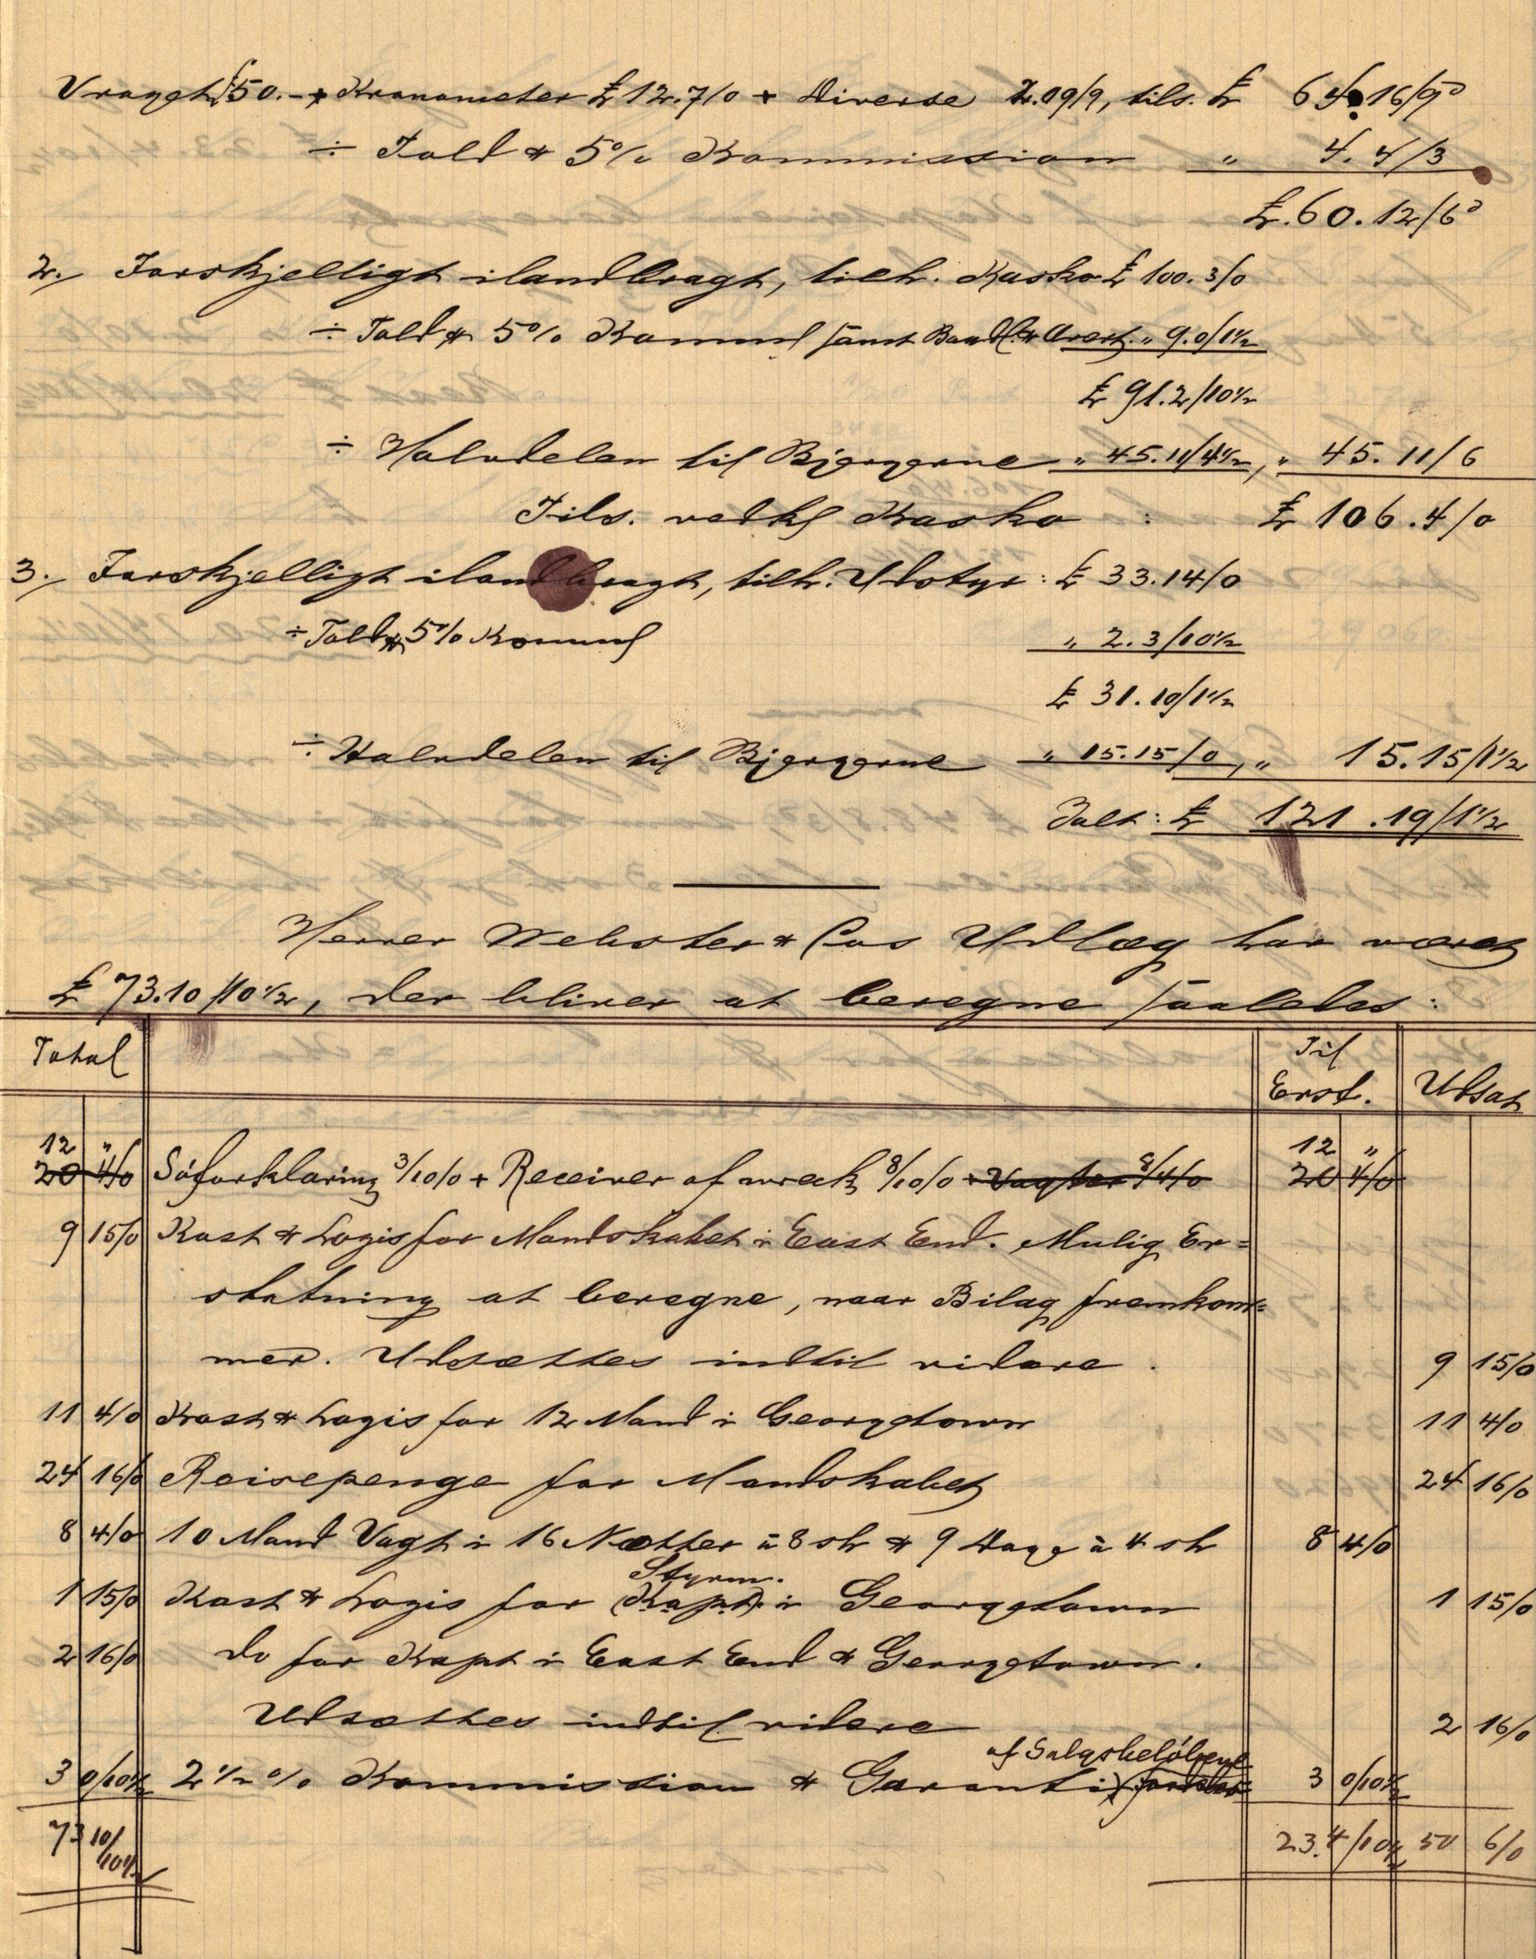 Vraget £50.- + Kronometer £12.7/0 + Diverse 2.09/9, tils. £ 64.16/9D
÷ Told & 5% Kommission " 4.4/3
£.60.12/6D
2./ Forskjelligt ilandbragt, tilh. Kasko £ 100.3/0
÷ Told & 5% Komms samt " 9.0/1½
£ 91.2/10½
÷ Halvdelen til Bjergerne " 45.11/4½, " 45.11/6
Tils. vedk. Kasko : £ 106.4/0
3./ Forskjelligt ilandbragt, tilh. Udstyr : £ 33.14/0
÷ Told & 5% Komms " 2.3/10½
£ 31.10/1½
÷ Halvdelen til Bjergerne " 15.15/0, " 15.15/1½
Ialt : £ 121.19/1½
Herrer Webster & Cos Udlæg har været
£ 73.10/10½, der bliver at beregne saaledes :
Total Til Erst. Udsat
12 " 12 "
20 4/0 Søforklaring 3/10/0 + Receiver of wreck 8/10/0 + Vagter 8/4/0 20 4/0
9 15/0 Kost & Logis for Mandskabet i East End. Mulig Er=
statning at beregne, naar Bilag fremkom=
mer. Udsættes indtil videre. 9 15/0
11 4/0 Kost & Logis for 12 Mand i Georgetown 11 4/0
24 16/0 Reisepenge for Mandskabet 24 16/0
8 4/0 10 Mand Vagt i 16 Nætter à 8 sh & 9 Dage à 4 sh 8 4/0
Styrm.
1 15/0 Kost & Logis for (Kapt.) i Georgetown 1 15/0
2 16/0 do for Kapt i East End & Georgetown.
Udsættes indtil videre 2 16/0
af Salgsbeløbene
3 0/10½ 2½% Kommission & Garanti fordeles 3 0/10½
73 10/10½ 23.4/10½ 50 6/0